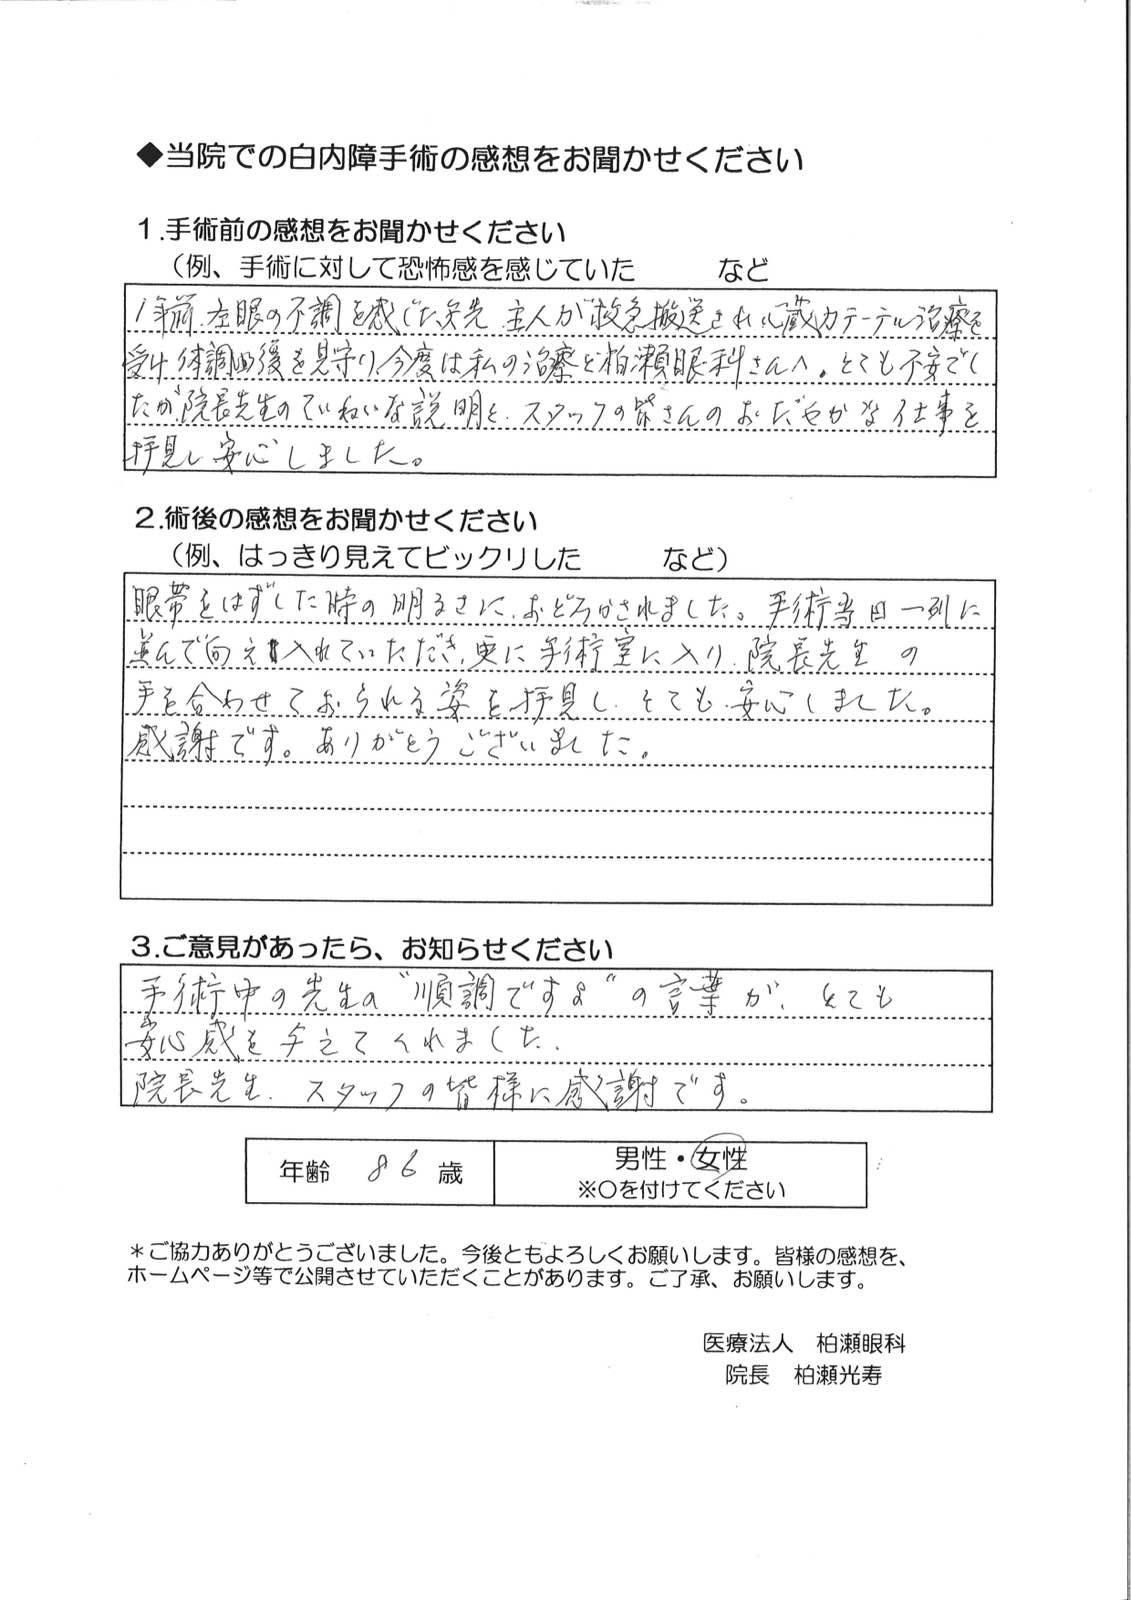 ◆当院での白内障手術の感想をお聞かせください
１.手術前の感想をお聞かせください
（例、手術に対して恐怖感を感じていた　　　など
1年前.左眼の不調を感じた矢先 主人が救急搬送され心蔵カテーテル治療を
受け体調回復を見守り今度は私の治療を柏瀬眼科さんへ。とても不安でし
たが院長先生のていねいな説明と.スタッフの皆さんのおだやかな仕事を
拝見し安心しました。
２.術後の感想をお聞かせください
（例、はっきり見えてビックリした　　　など）
眼帯をはずした時の明るさに.おどろかされました。手術当日一列に
並んで向え入れていただき.更に手術室に入り.院長先生の
手を合わせておられる姿を拝見し.とても安心しました。
感謝です。ありがとうございました。
３.ご意見があったら、お知らせください
手術中の先生の“順調ですよ”の言葉が、とても
安心感を与えてくれました.
院長先生.スタッフの皆様に感謝です。
年齢　86　歳
男性・女性
※○を付けてください
＊ご協力ありがとうございました。今後ともよろしくお願いします。皆様の感想を、
ホームページ等で公開させていただくことがあります。ご了承、お願いします。
医療法人　柏瀬眼科
院長　柏瀬光寿